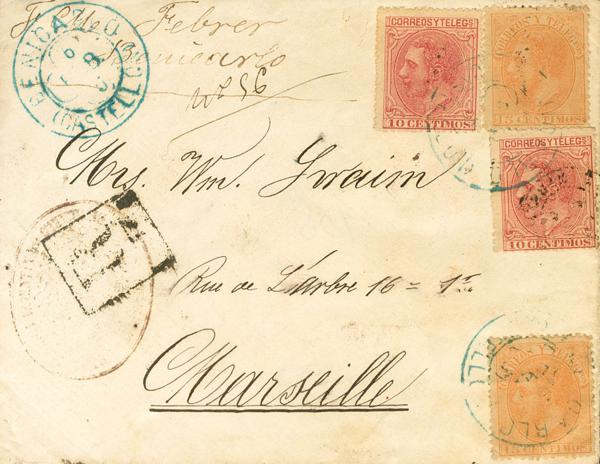 Febrer
Benicarlo
Nº 56
BENICARLO (CASTELLON)
CORREOS Y TELEGS
10 CENTIMOS
CORREOS Y TELEGS
15 CENTIMOS
CORREOS Y TELEGS
10 CENTIMOS
15 CENTIMOS
R
Mrs. Wm. Swaim
Rue de L'arbre 16 = 1º
Marseille